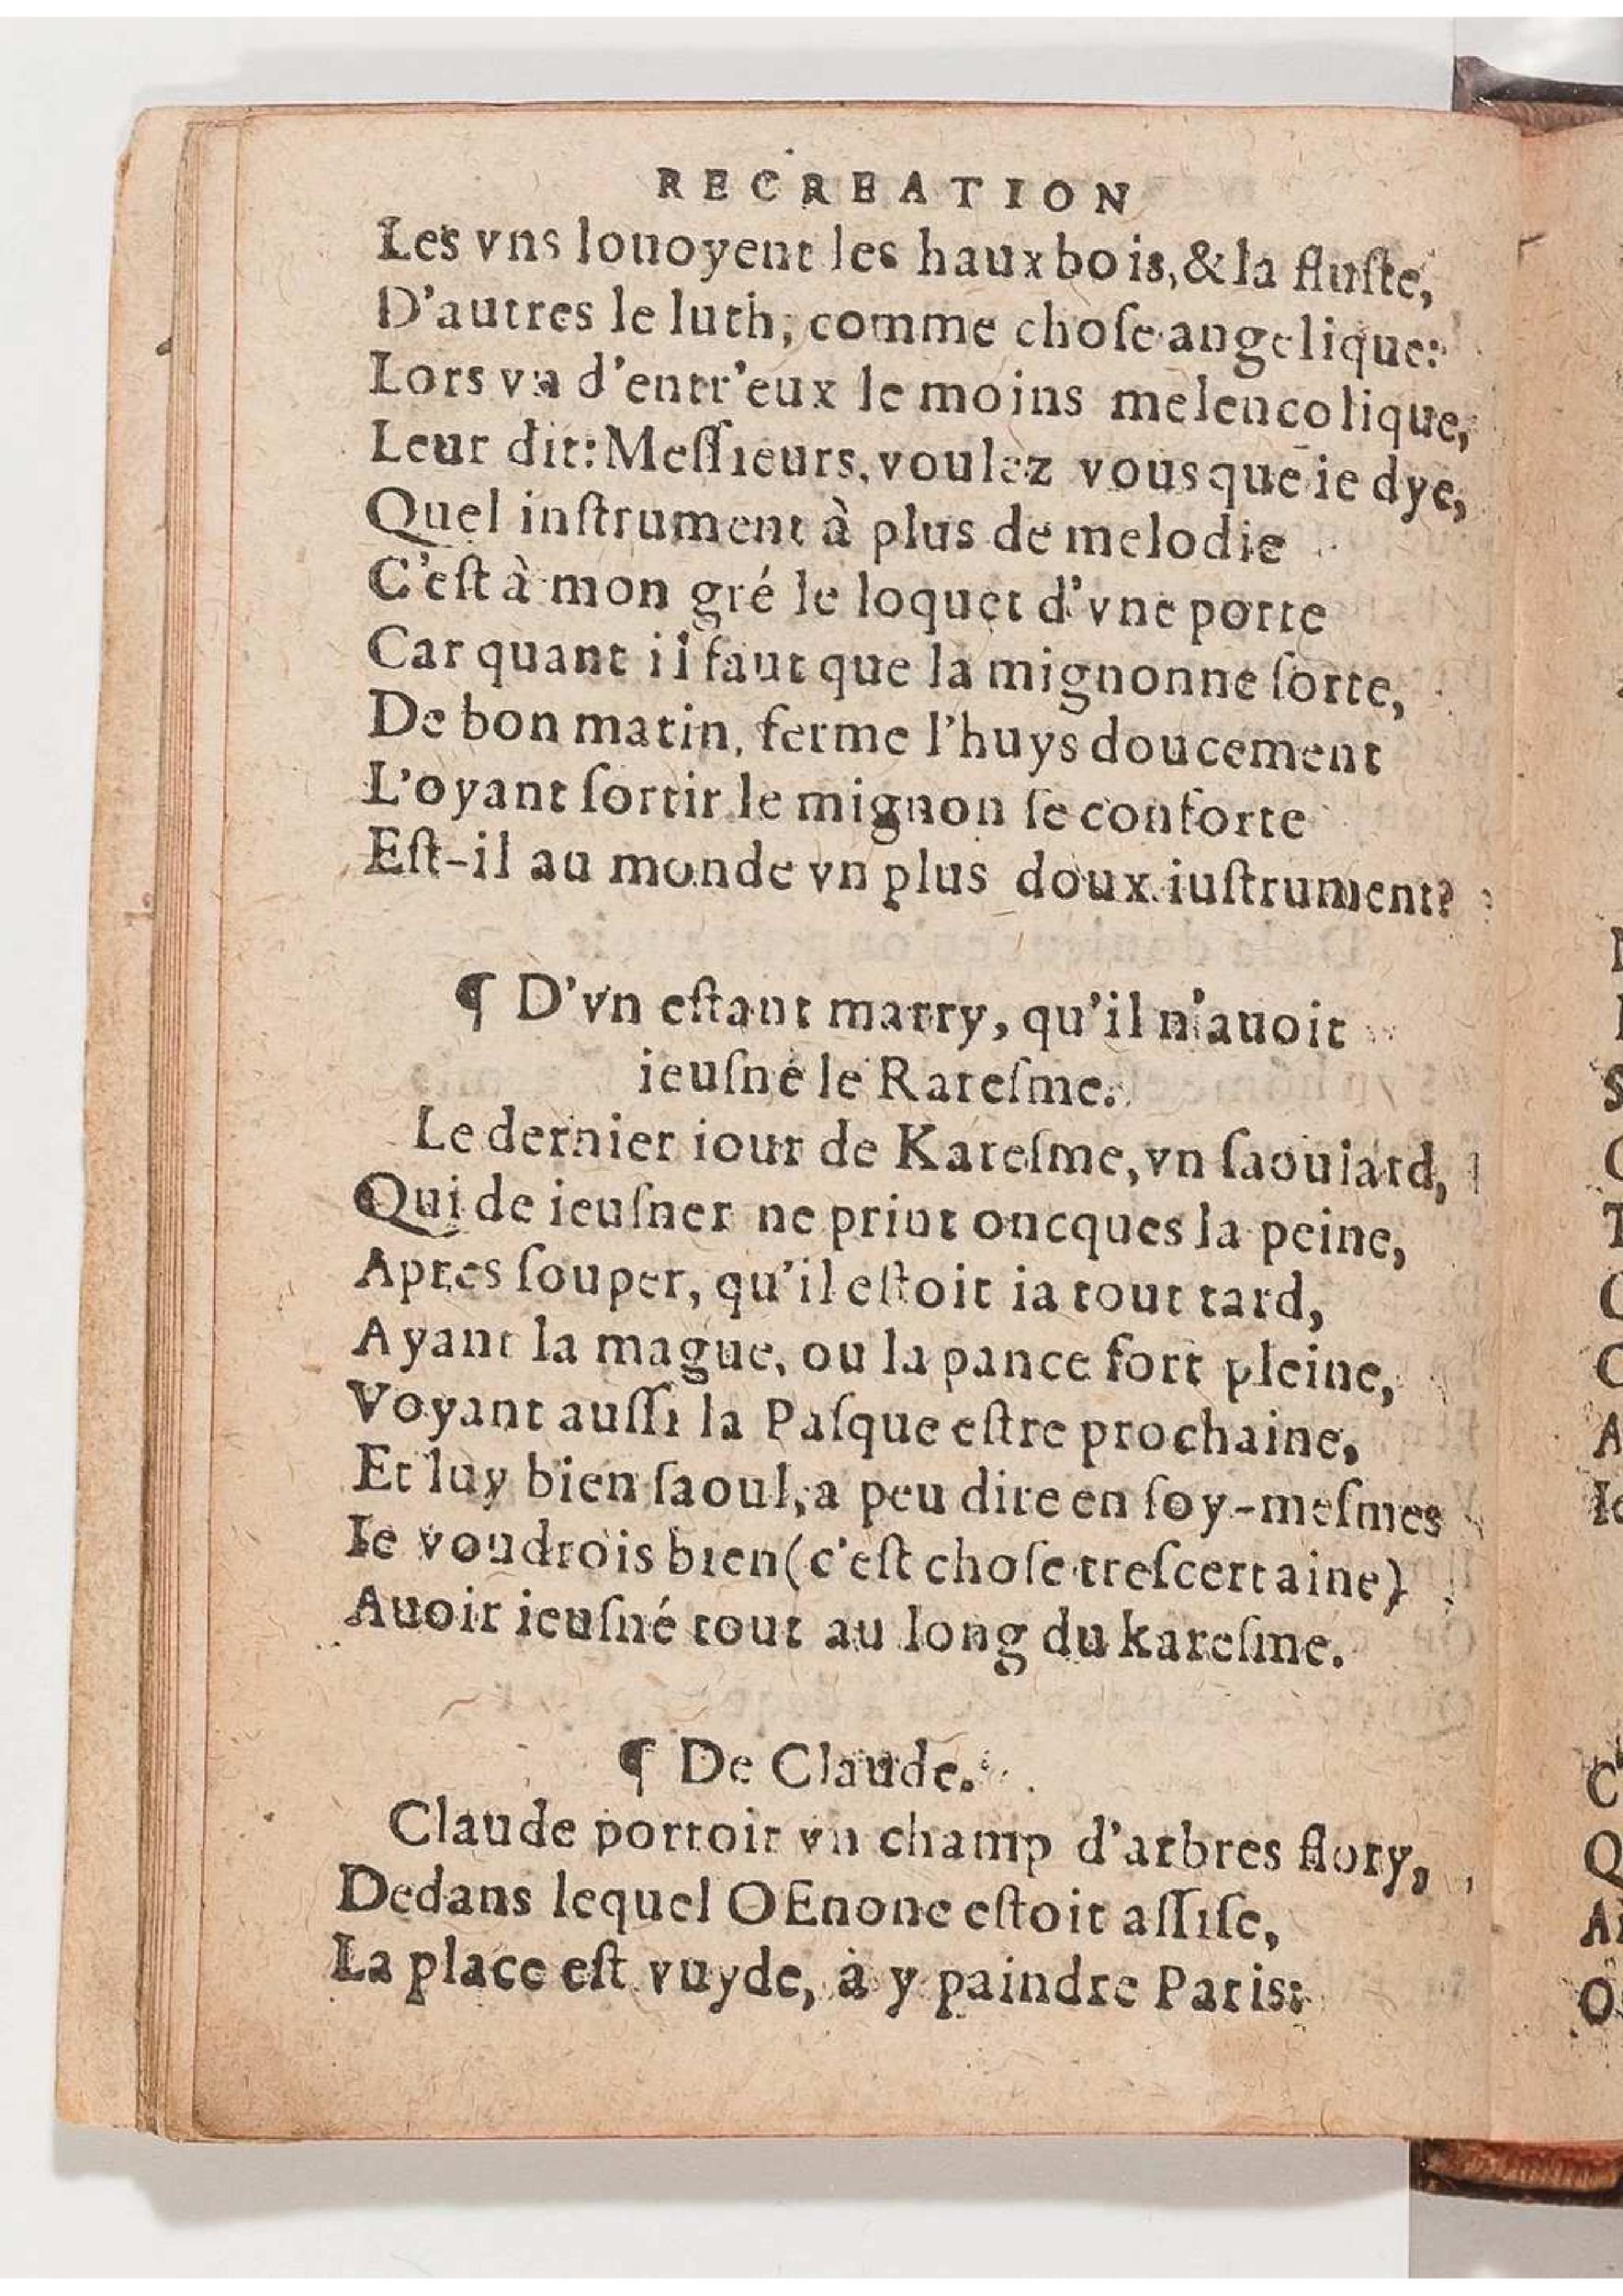 RECREATION
Les vns louoyent les hauxbois, & la fluſte,
D'autres le luth, comme choſe angelique:
Lors vn d'entr'eux le moins melencolique,
Leur dit: Meſſieurs, voulez vous que ie dye,
Quel inſtrument à plus de melodie
C'eſt à mon gré le loquet d'vne porte
Car quant il faut que la mignonne ſorte,
De bon matin, ferme l'huys doucement
L'oyant ſortir le mignon ſe conforte
Eſt-il au monde vn plus doux iuſtrument?
¶ D'vn eſtant marry, qu'il n'auoit
ieuſné le Rareſme.
Le dernier iour de Kareſme, vn ſaoulard,
Qui de ieuſner ne print oncques la peine,
Apres ſouper, qu'il eſtoit ia tout tard,
Ayant la mague, ou la pance fort pleine,
Voyant auſſi la Paſque eſtre prochaine,
Et luy bien ſaoul, a peu dire en ſoy-meſmes
Ie voudrois bien (c'eſt choſe treſcertaine)
Auoir ieuſné tout au long du kareſme.
¶ De Claude.
Claude portoit vn champ d'arbres flory,
Dedans lequel OEnone eſtoit aſſiſe,
La place eſt vuyde, à y paindre Paris: